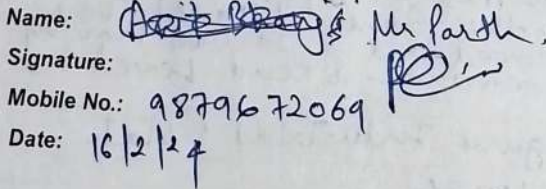 Name: Mr Parth.
Signature:
Mobile No.: 9879672069
Date: 16/2/24